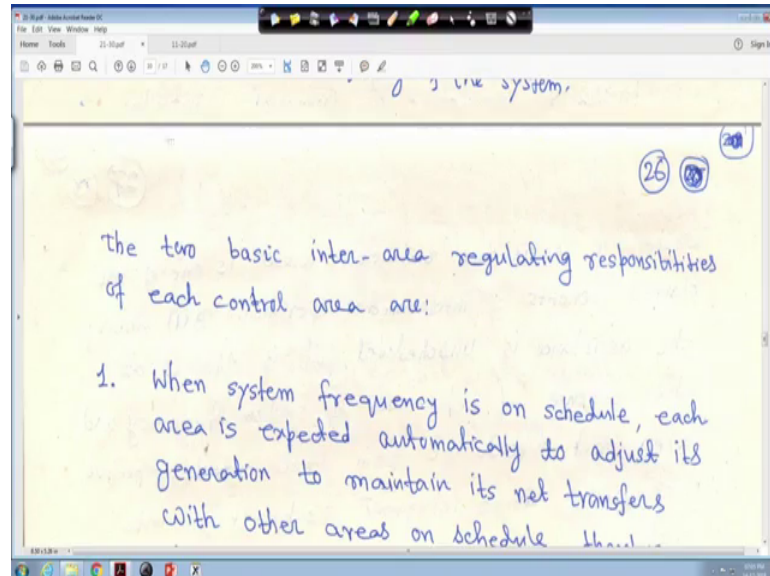 21-30.pdf - Adobe Acrobat Reader DC
File Edit View Window Help
Home Tools 21-30.pdf × 11-20.pdf Sign In
the system.
26
The two basic inter-area regulating responsibilities
of each control area are:
1. When system frequency is on schedule, each
area is expected automatically to adjust its
generation to maintain its net transfers
with other areas on schedule